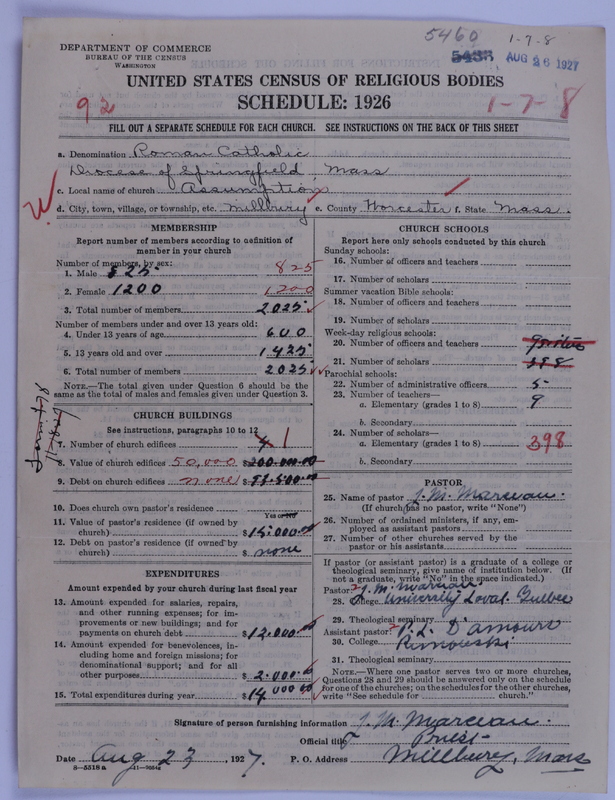 5460
1-7-8
DEPARTMENT OF COMMERCE
BUREAU OF THE CENSUS
WASHINGTON
5433 AUG 26 1927
UNITED STATES CENSUS OF RELIGIOUS BODIES
92 SCHEDULE: 1926 1-7-8
FILL OUT A SEPARATE SCHEDULE FOR EACH CHURCH. SEE INSTRUCTIONS ON THE BACK OF THIS SHEET
a. Denomination Roman Catholic
Diocese of Springfield Mass
c. Local name of church Assumption
d. City, town, village, or township, etc. Millbury e. County Worcester f. State Mass.
MEMBERSHIP
Report number of members according to definition of
member in your church
Number of members, by sex:
1. Male 825 825
2. Female 1200 1,200
3. Total number of members 2025
Number of members under and over 13 years old:
4. Under 13 years of age 600
5. 13 years old and over 1425
6. Total number of members 2025
NOTE.—The total given under Question 6 should be the
same as the total of males and females given under Question 3.
CHURCH BUILDINGS
See instructions, paragraphs 10 to 12
7. Number of church edifices 4 1
8. Value of church edifices 50,000 $200.000.00
9. Debt on church edifices none $
10. Does church own pastor's residence?
Yes or No
11. Value of pastor's residence (if owned by
church) $15.000.00
12. Debt on pastor's residence (if owned by
church) $ none
EXPENDITURES
Amount expended by your church during last fiscal year
13. Amount expended for salaries, repairs,
and other running expenses; for im-
provements or new buildings; and for
payments on church debt $12.000.00
14. Amount expended for benevolences, in-
cluding home and foreign missions; for
denominational support; and for all
other purposes $2.000.00
15. Total expenditures during year $14 000 00
CHURCH SCHOOLS
Report here only schools conducted by this church
Sunday schools:
16. Number of officers and teachers
17. Number of scholars
Summer vacation Bible schools:
18. Number of officers and teachers
19. Number of scholars
Week-day religious schools:
20. Number of officers and teachers
21. Number of scholars 398
Parochial schools:
22. Number of administrative officers 5
23. Number of teachers—
a. Elementary (grades 1 to 8) 9
b. Secondary
24. Number of scholars—
a. Elementary (grades 1 to 8) 398
b. Secondary
PASTOR
25. Name of pastor J. M. Marceau.
(If church has no pastor, write "None")
26. Number of ordained ministers, if any, em-
ployed as assistant pastors
27. Number of other churches served by the
pastor or his assistants
If pastor (or assistant pastor) is a graduate of a college or
theological seminary, give name of institution below. (If
not a graduate, write "No" in the space indicated.)
Pastor: J. M. Marceau
28. College University Laval Quebec
29. Theological seminary
Assistant pastor: P. L. D'amours
30. College Rimouski
31. Theological seminary
NOTE.—Where one pastor serves two or more churches,
Questions 28 and 29 should be answered only on the schedule
for one of the churches; on the schedules for the other churches,
write "See schedule for church."
Signature of person furnishing information J. M. Marceau.
Official title Priest
Date Aug 23, 1927. P. O. Address Millbury, Mass
8—5518a 11—9054